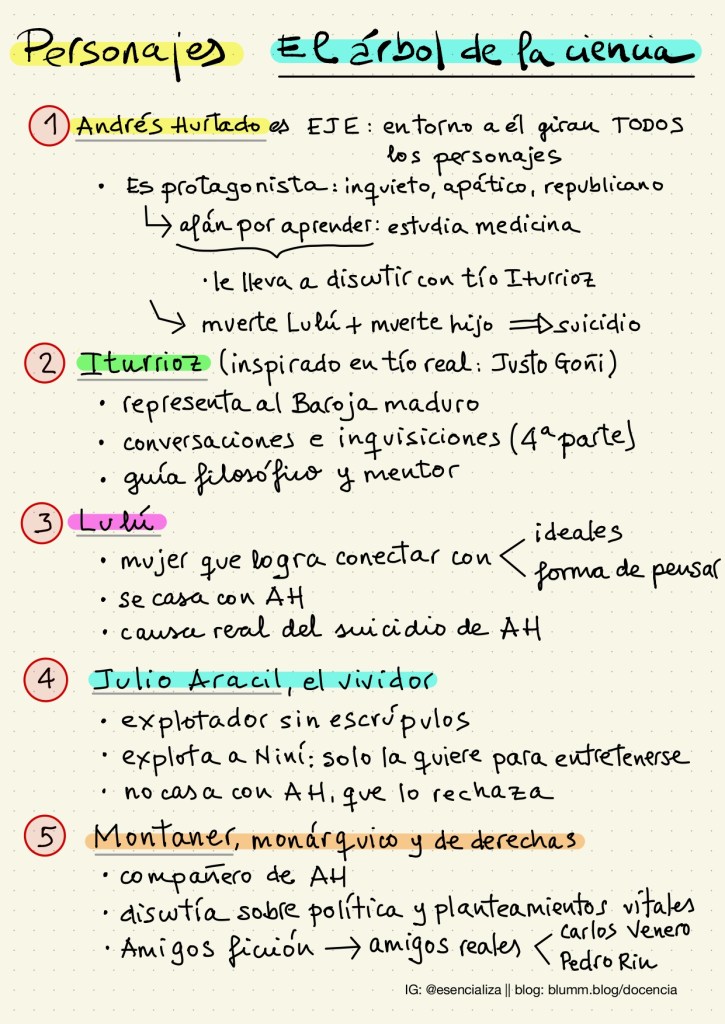 Personajes El árbol de la ciencia
1 Andrés Hurtado es EJE: entorno a él giran TODOS
los personajes
• Es protagonista: inquieto, apático, republicano
↳ afán por aprender: estudia medicina
• le lleva a discutir con tío Iturrioz
↳ muerte Lulú + muerte hijo ⇒ suicidio
2 Iturrioz (inspirado en tío real: Justo Goñi)
• representa al Baroja maduro
• conversaciones e inquisiciones (4ª parte)
• guía filosófico y mentor
3 Lulú
• mujer que logra conectar con < ideales
forma de pensar
• se casa con AH
• causa real del suicidio de AH
4 Julio Aracil, el vividor
• explotador sin escrúpulos
• explota a Niní: solo la quiere para entretenerse
• no casa con AH, que lo rechaza
5 Montaner, monárquico y de derechas
• compañero de AH
• discutía sobre política y planteamientos vitales
• Amigos ficción → amigos reales < Carlos Venero
Pedro Riu
IG: @esencializa || blog: blumm.blog/docencia